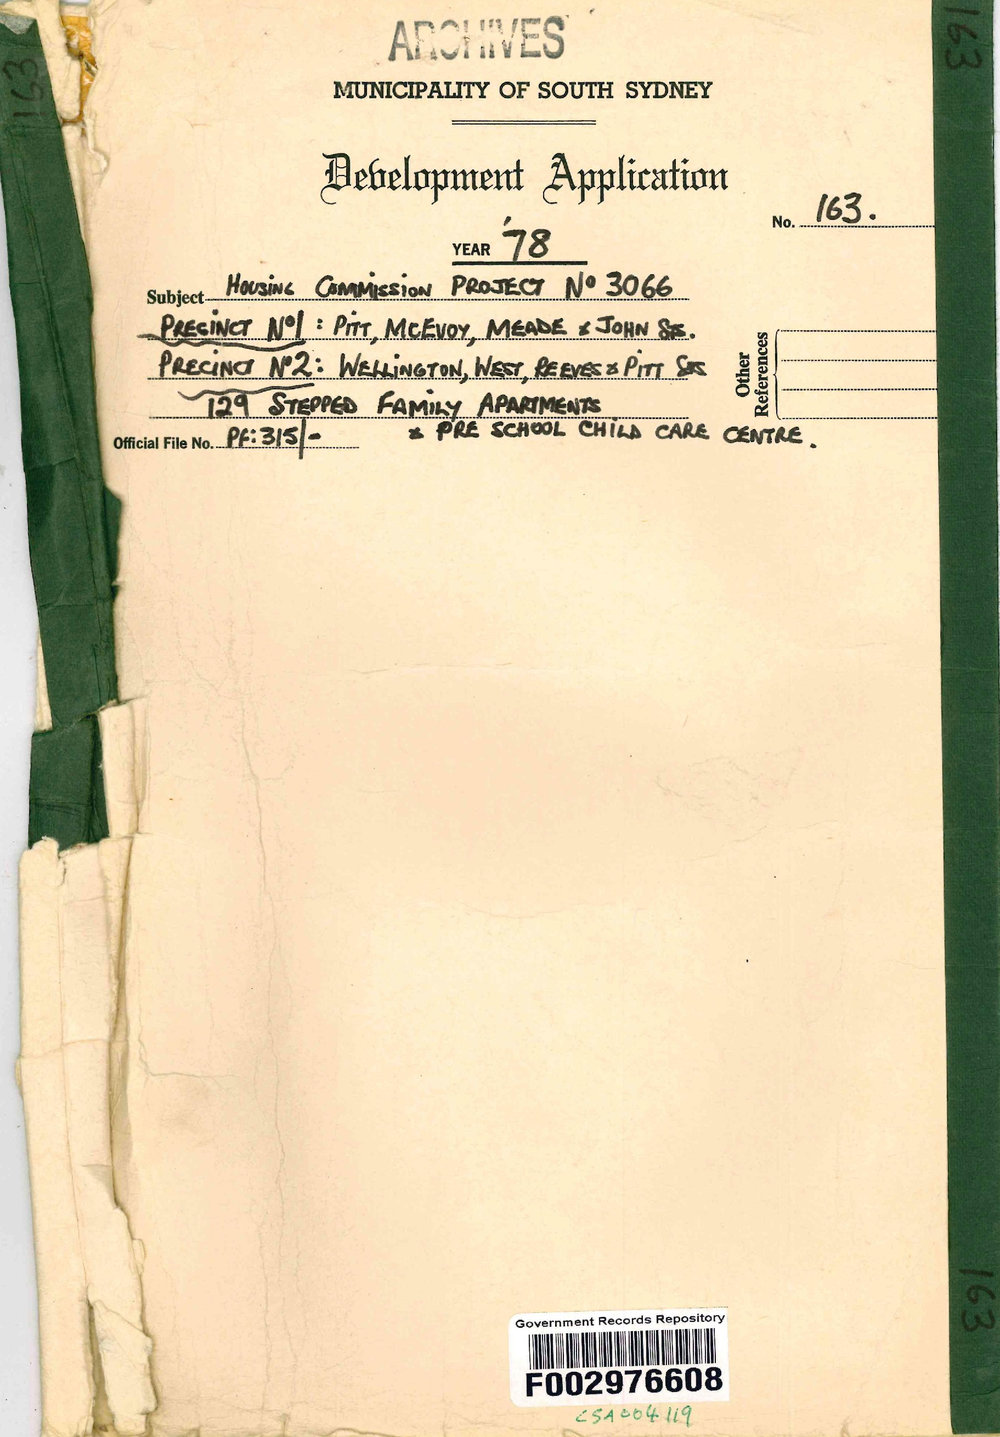 163
163
ARCHIVES
MUNICIPALITY OF SOUTH SYDNEY
Development Application
No. 163.
YEAR '78
Subject HOUSING COMMISSION PROJECT Nº 3066
PRECINCT Nº1 : PITT, MCEVOY, MEADE & JOHN STS.
PRECINCT Nº2 : WELLINGTON, WEST, REEVES & PITT STS
129 STEPPED FAMILY APARTMENTS
& PRE SCHOOL CHILD CARE CENTRE.
Other References
Official File No. PF:315/-
163
Government Records Repository
F002976608
CSA004119